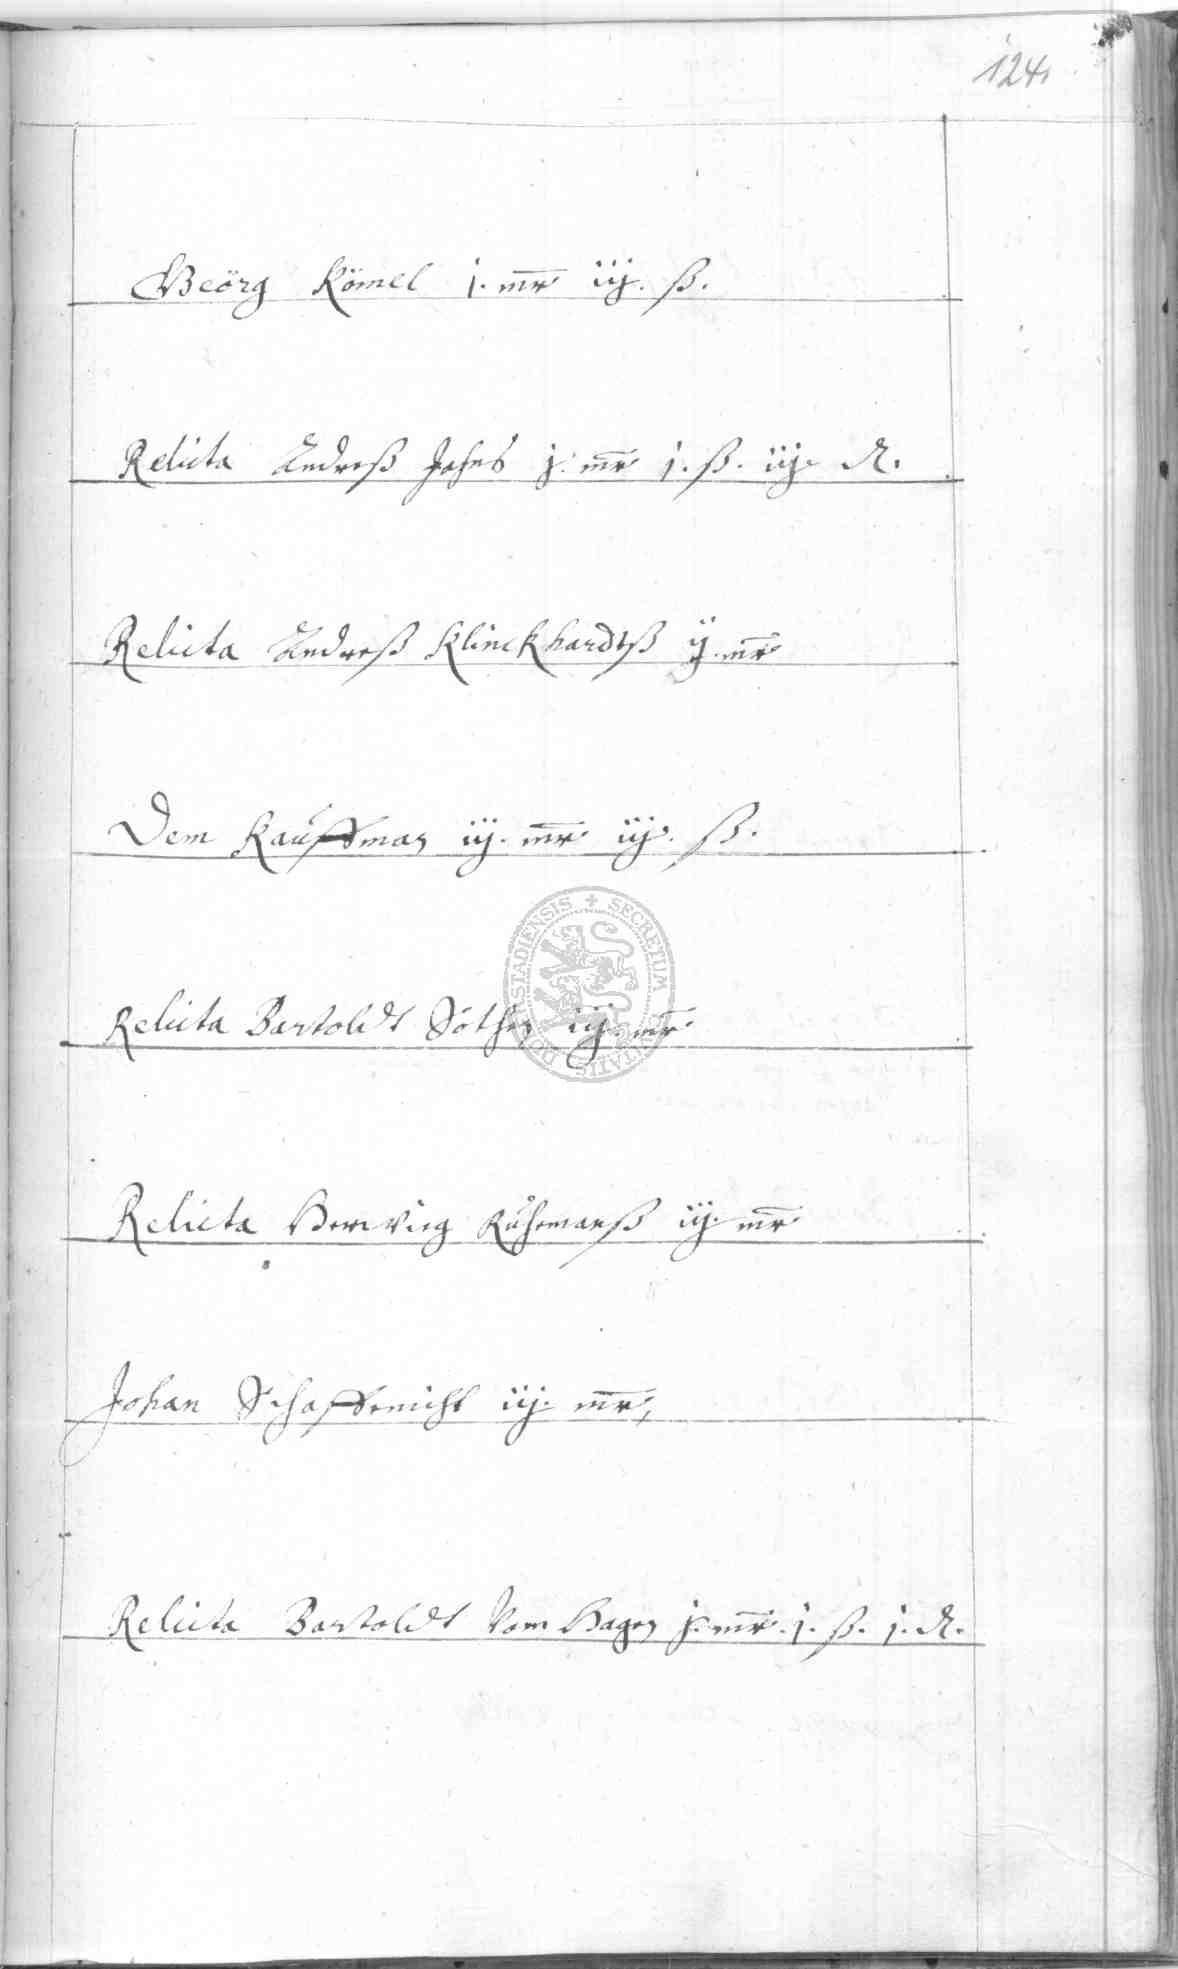 124
Geörg Kömel j. mr iij. ß.
Relicta Andreß Johns j. mr j. ß. iij. d.
Relicta Andreß Klinckhardtß ij. mr
Dem Kauffman iij. mr iij. ß.
Relicta Bartoldt Söthen iij. mr
SECRETUM CIVITATIS DUDERSTADIENSIS
Relicta Herwieg Kühemanß iij. mr
Johan Schaffenicht iij. mr,
Relicta Bartoldt Vom Hagen j. mr. j. ß. j. d.